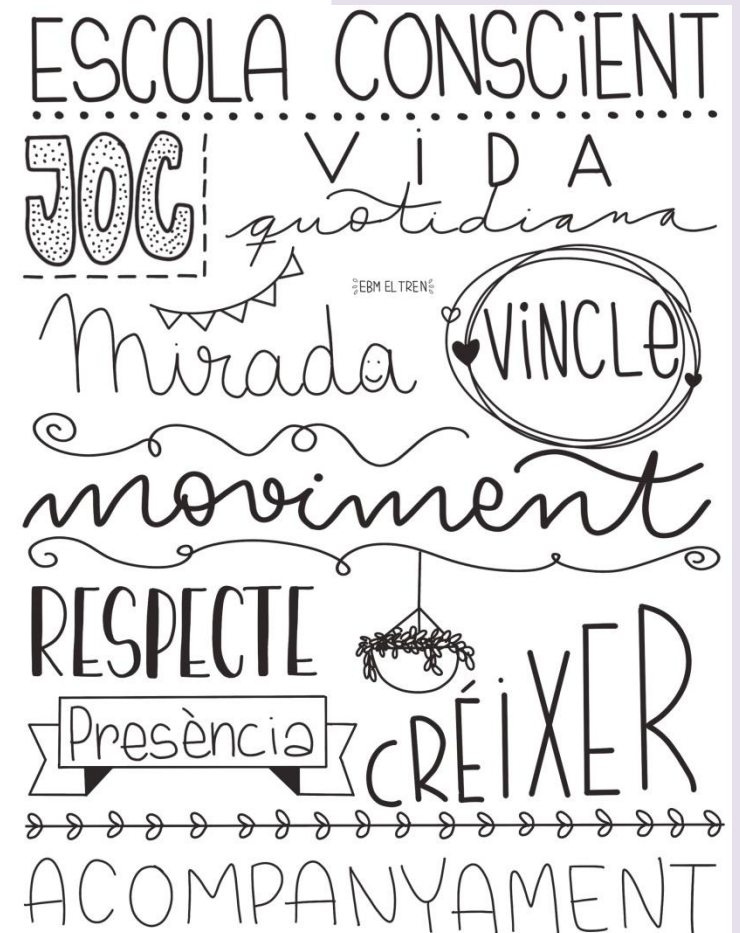 ESCOLA CONSCiENT
JOC
ViDA
quotidiana
EBM EL TREN
Mirada
ViNCLe
moviment
RESPECTE
Presència
CRÉiXER
ACOMPANYAMENT